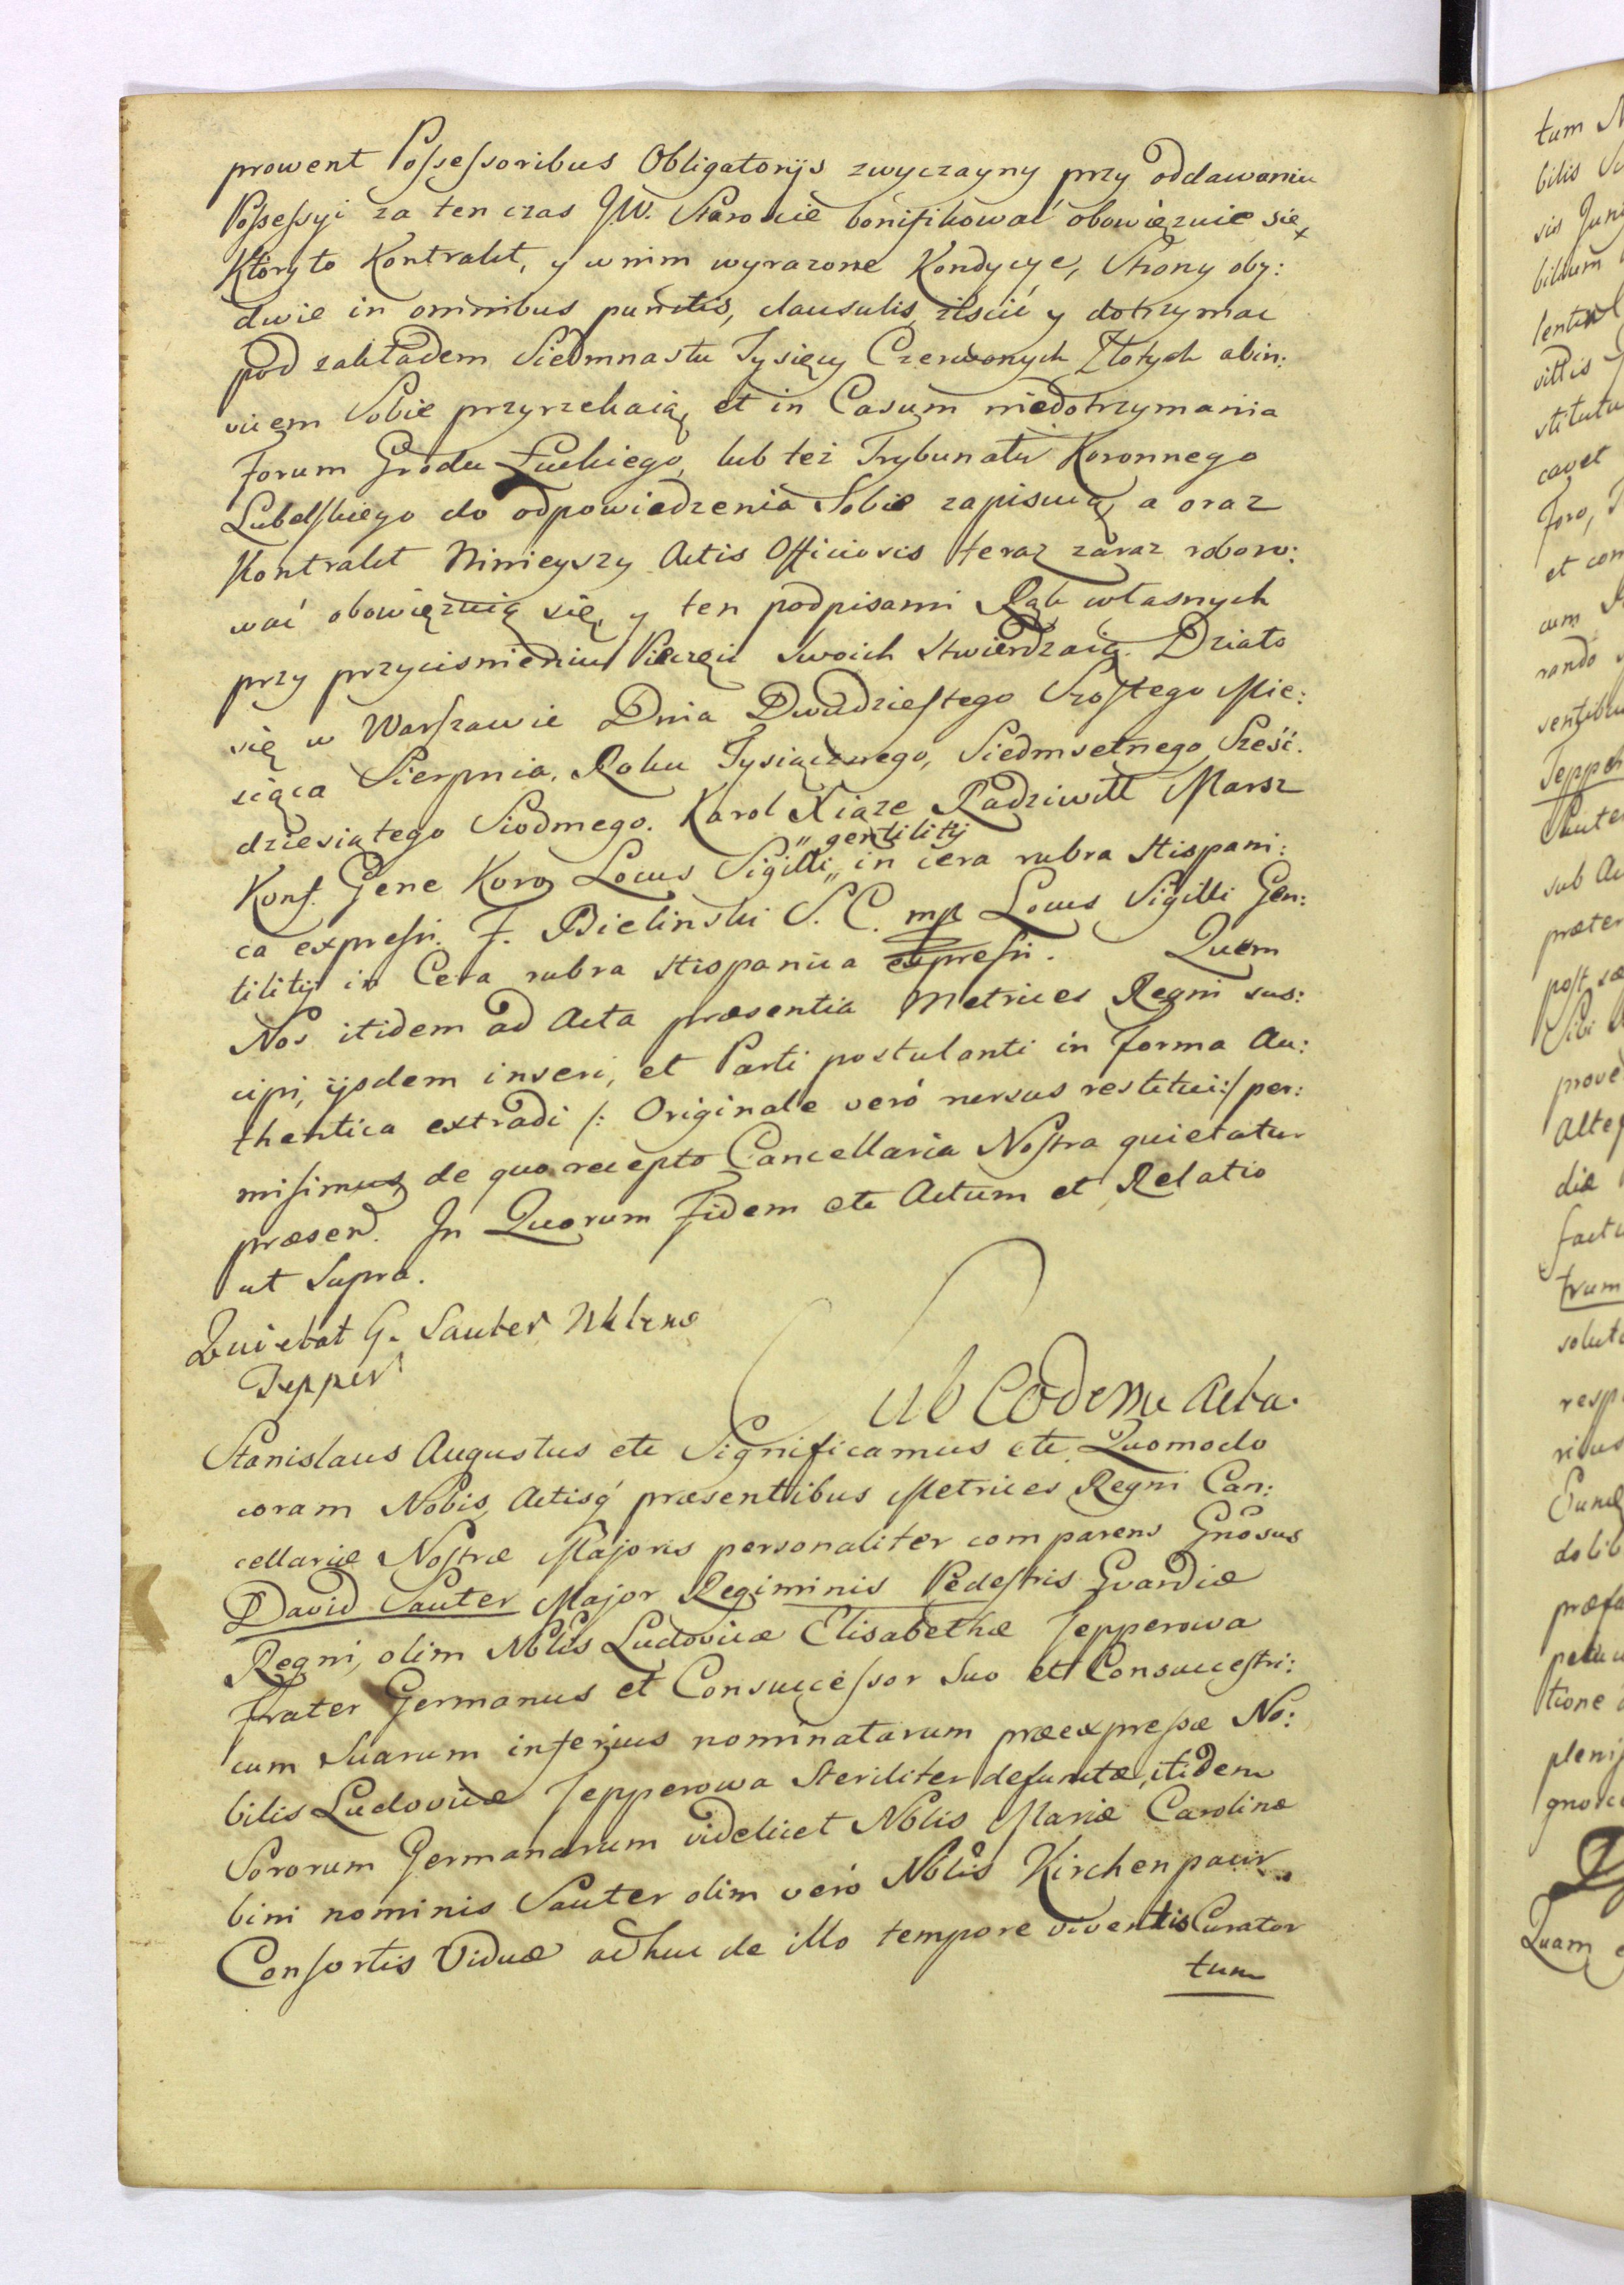 prowent Possessoribus Obligatorijs zwyczayny przy oddawaniu
Possessyi za ten czas JW. Staroscie bonifikować obowięzuie się
Ktory to Kontrakt, y w nim wyrazone Kondycye, Strony oby:
dwie in omnibus punctis, clausulis ziscić y dotrzymac
pod zakładem Siedmnastu Tysięcy Czerwonych Złotych abin:
vicem Sobie przyrzekaią, et in Casum niedotrzymania
Forum Grodu Łuckiego, lub tez Trybunału Koronnego
Lubelskiego do odpowiedzenia Sobie zapisuią, a oraz
Kontrakt Ninieyszy Actis Officiosis teraz zaraz roboro:
wać obowięzuią się, y ten podpisami Rąk własnych
przy przycisnieniu Pieczęci swoich stwierdzaią. Działo
się w Warszawie Dnia Dwudziestego Szostego Mie:
siąca Sierpnia, Roku Tysiącznego, Siedmsetnego, Sześć.
dziesiątego Siodmego. Karol Xiąze Radziwiłł Marsz
Konf. Gene Koro Locus Sigilli „gentilitij„ in cera rubra Hispani:
ca expressi. F. Bielinski S. C. mp Locus Sigilli Gen:
tilitij in Cera rubra Hispanica expressi. Quem
Nos itidem ad Acta præsentia Metrices Regni sus:
cipi, ijsdem inseri, et Parti postulanti in forma Au:
thentica extradi /: Originale veró rursus restitui:/ per:
misimus, de quo recepto Cancellaria Nostra quietatur
præsen. In Quorum Fidem etc Actum et Relatio
ut Supra.
Quietat G. Sauter
Tepper
Sub Eodem Acta.
Stanislaus Augustus etc Significamus etc Quomodo
coram Nobis, Actisq́ præsentibus Metrices Regni Can:
cellariæ Nostræ Majoris personaliter comparens Gnosus
David Sauter Major Regiminis Pedestris Gvardiæ
Regni, olim Nblis Ludovicæ Elisabethæ Tepperowa
Frater Germanus et Consuccessor Suo et Consuccestri:
cum Suarum inferius nominatarum præexpressæ No:
bilis Ludovicæ Tepperowa Steriliter defunctæ, itidem
Sororum Germanarum videlicet Nblis Mariæ Carolinæ
bini nominis Sauter olim veró Nblis Kirchenpaur
Consortis Viduæ adhuc de illo tempore viventis Curator
tum